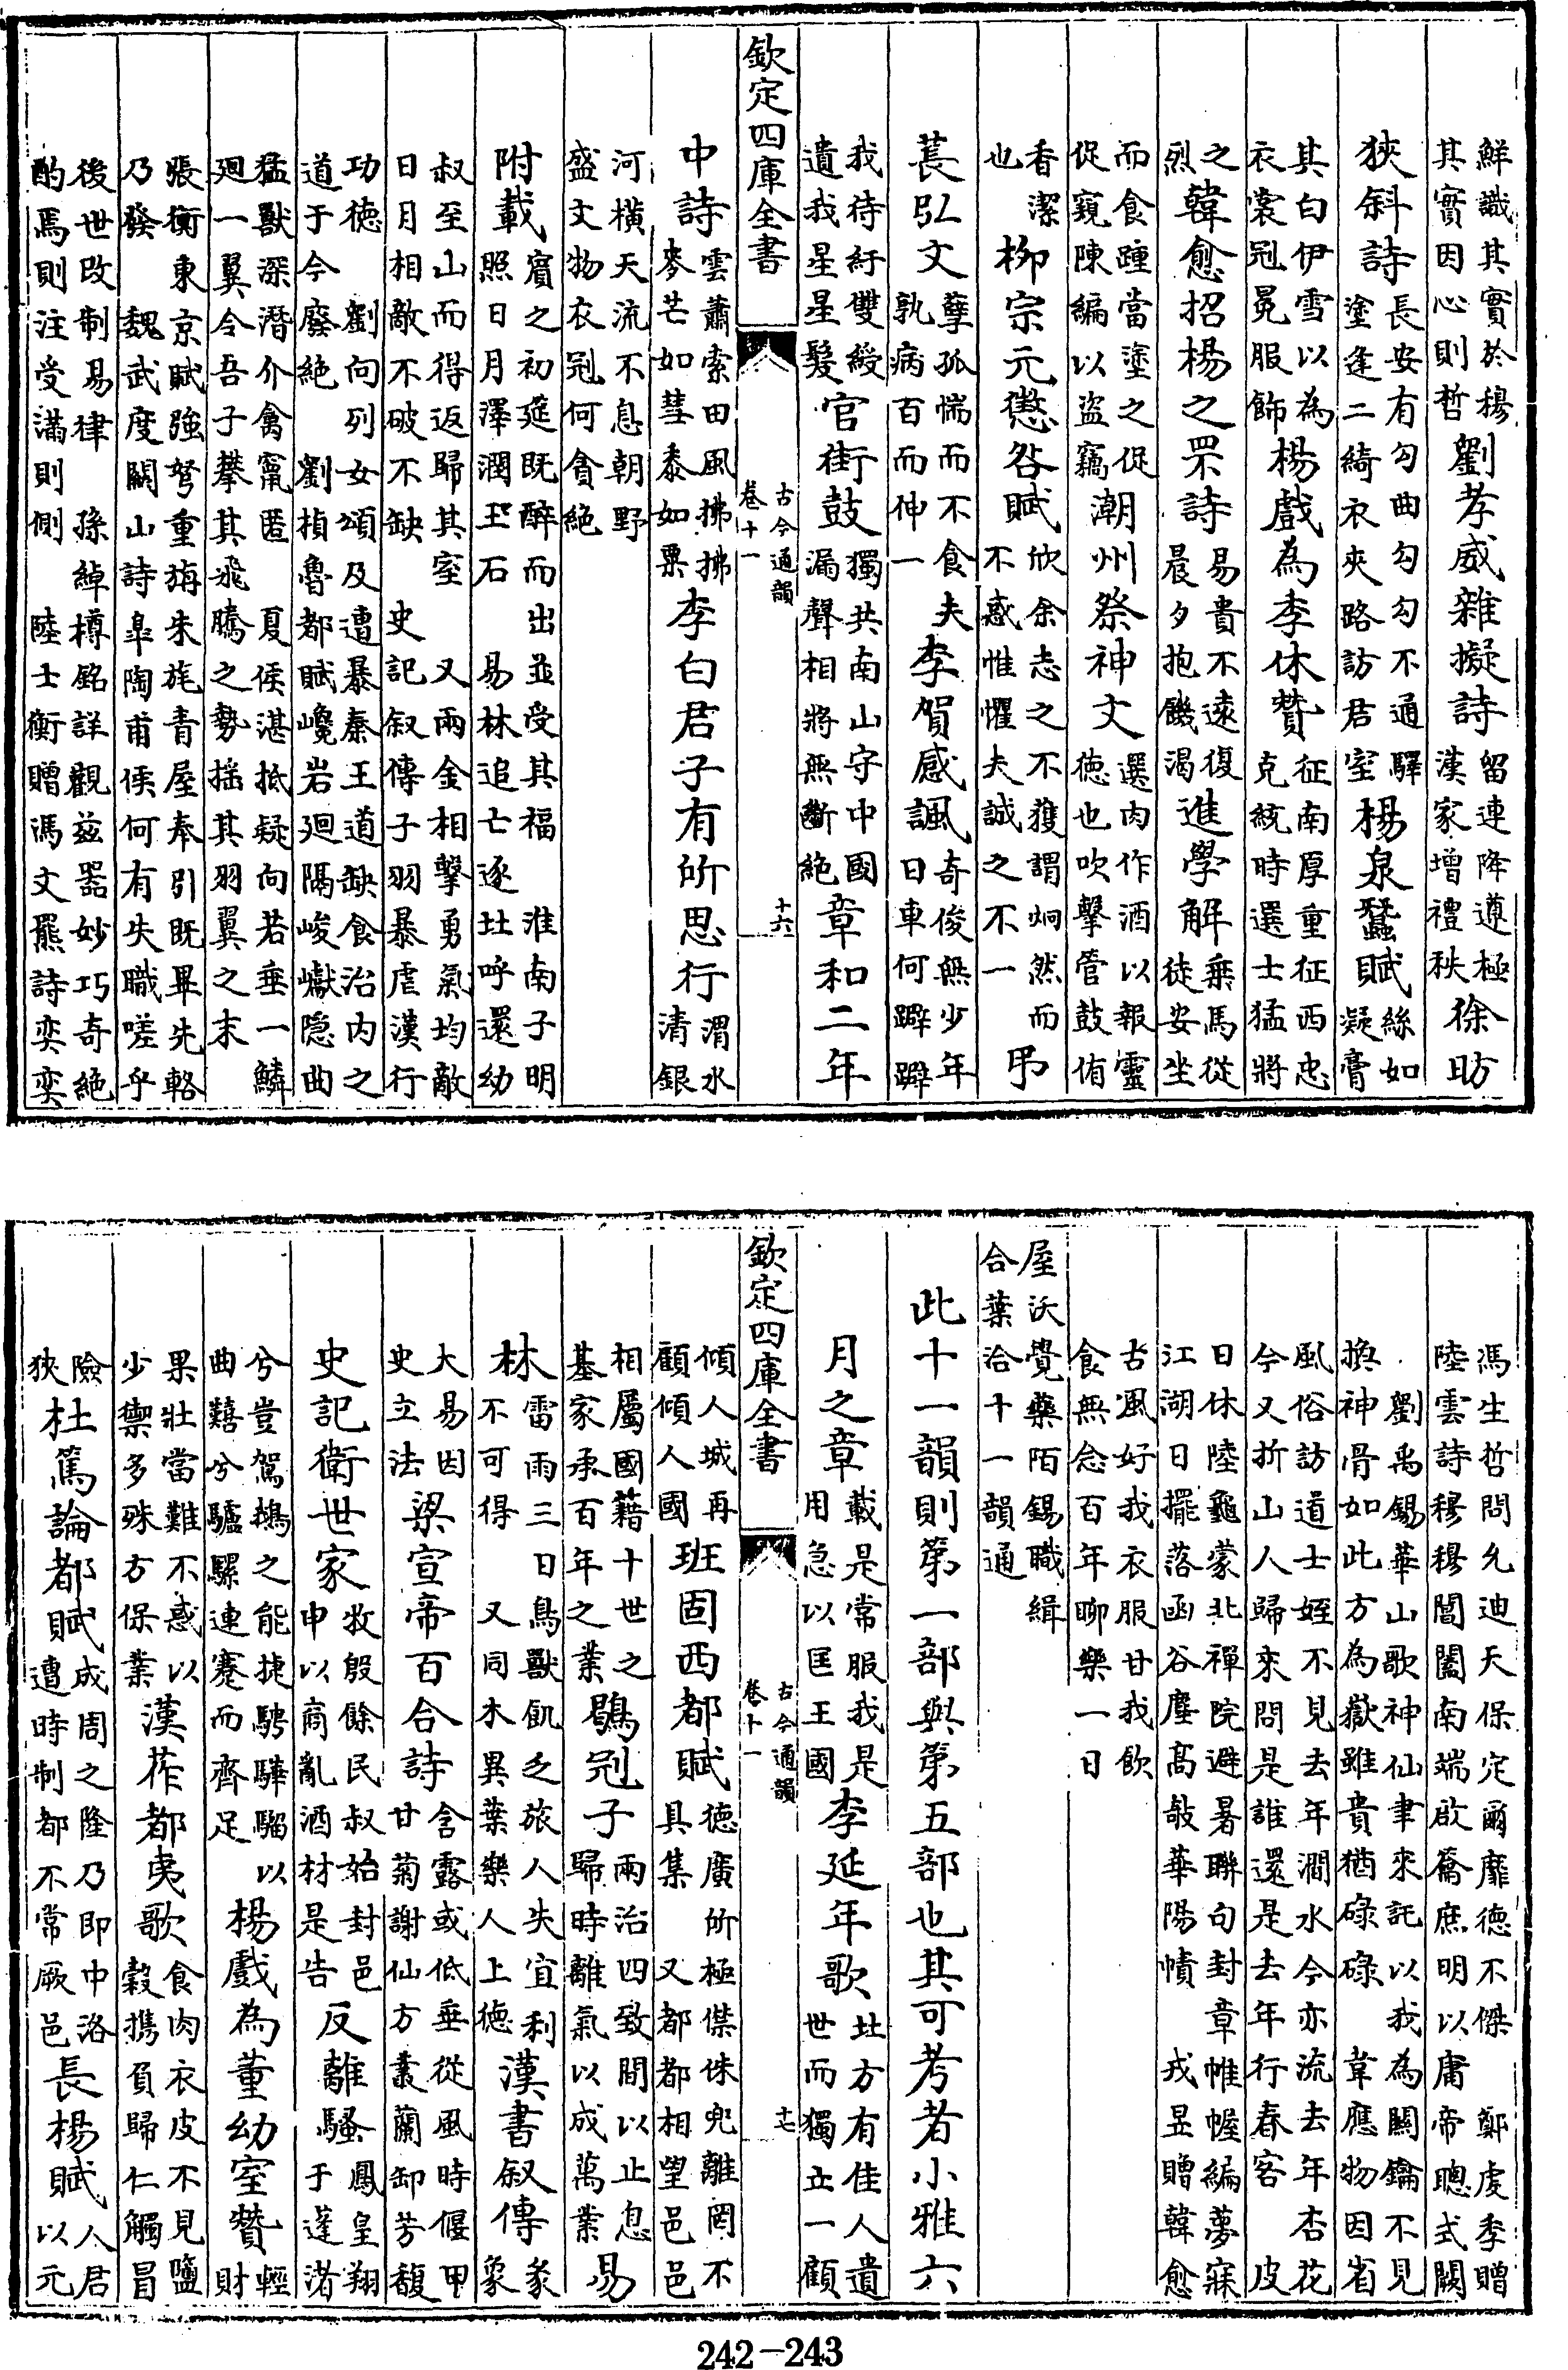 鮮識其實於楊其實因心則哲劉孝威雜擬詩留連降遵極漢家增禮秩徐昉
狹斜詩長安有勾曲勾勾不通驛塗逢二綺衣夾路訪君室楊泉蠶賦絲如凝膏
其白伊雪以為衣裳冠冕服飾楊戲為李休贊征南厚重征西忠克統時選士猛將
之烈韓愈招楊之罘詩易貴不遠復晨夕抱饑渴進學解乘馬從徒安坐
而食踵當塗之促促窺陳編以盜竊潮州祭神文選肉作酒以報靈德也吹擊管鼓侑
香潔也柳宗元懲咎賦欣余志之不獲謂炯然而不惑惟懼夫誠之不一弔
萇弘文孽孤惴而不食夫孰病百而伸一李賀感諷奇俊無少年日車何躃躃
我待紆雙綬遺我星星髮官街鼓獨共南山守中國漏聲相將無斷絕章和二年
欽定四庫全書 古今通韻 卷十一 十六
中詩雲蕭索田風拂拂麥芒如彗黍如粟李白君子有所思行渭水清銀
河橫天流不息朝野盛文物衣冠何貪絕
附載賓之初筵既醉而出並受其福 淮南子明照日月澤潤玉石 易林追亡逐北呼還幼
叔至山而得返歸其室 又兩金相擊勇氣均敵日月相敵不破不缺 史記叙傳子羽暴虐漢行
功德 劉向列女頌及遭暴秦王道缺食治内之道于今廢絕 劉楨魯都賦巉岩迴隔峻巘隱曲
猛獸深潛介禽竄匿 夏侯湛抵疑向若垂一鱗迴一翼令吾子攀其飛騰之勢揺其羽翼之末
張衡東京賦強弩重旃朱旄青屋奉引既畢先輅乃發 魏武度關山詩皐陶甫侯何有失職嗟乎
後世改制易律 孫綽樽銘詳觀兹器妙巧奇絕酌焉則注受滿則側 陸士衡贈馮文羆詩奕奕
馮生哲問允迪天保定爾靡德不傑 鄭虔季贈陸雲詩穆穆閶闔南端啟籥庶明以庸帝聰式闕
劉禹錫華山歌神仙聿來託以我為關鑰不見換神骨如此方為嶽雖貴猶碌碌 韋應物因省
風俗訪道士姪不見去年澗水今亦流去年杏花今又折山人歸來問是誰還是去年行春客 皮
日休陸龜蒙北禪院避暑聯句封章帷幄編夢寐江湖日擺落函谷塵髙敧華陽幘 戎昱贈韓愈
古風好我衣服甘我飲食無念百年聊樂一日
屋沃覺藥陌錫職緝合葉洽十一韻通
此十一韻則第一部與第五部也其可考者小雅六
月之章載是常服我是用急以匡王國李延年歌北方有佳人遺世而獨立一顧
欽定四庫全書 古今通韻 卷十一 十七
傾人城再顧傾人國班固西都賦德廣所極傑侏兜離罔不具集 又都都相望邑邑
相屬國藉十世之基家承百年之業鶡冠子兩治四致間以止息歸時離氣以成萬業易
林雷雨三日鳥獸飢乏旅人失宜利不可得 又同木異葉樂人上德漢書叙傳彖象
大易因史立法梁宣帝百合詩含露或低垂從風時偃甲甘菊謝仙方叢蘭卸芳馥
史記衛世家收殷餘民叔始封邑申以商亂酒材是告反離騷鳳皇翔于蓬渚
兮豈駕鵝之能捷騁驊騮以曲囏兮驢騾連蹇而齊足楊戲為董幼宰贊輕財
果壯當難不惑以少禦多殊方保業漢莋都夷歌食肉衣皮不見鹽榖攜負歸仁觸冒
險狹杜篤論都賦成周之隆乃即中洛遭時制都不常厥邑長楊賦人君以元
242-243